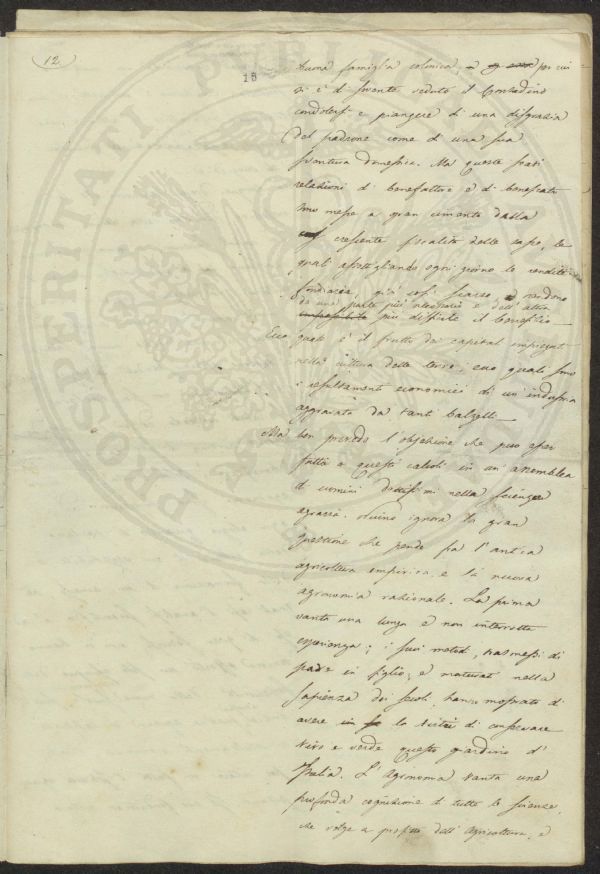 12
18
buona famiglia colonica e per cui
si è di sovente veduto il Contadino
condolersi e piangere di una disgrazia
del padrone come di una sua
sventura domestica. Ma queste
relazioni di benefattore e di beneficato
sono messe a gran cimento dalla
crescente fiscalità delle tasse, le
quali assottigliando ogni giorno le rendite
fondiarie, già così scarse, rendono
da una parte più necessario e dall'altra
impossibile più difficile il benefizio
Ecco quale è il frutto dei capitali impiegati
nella cultura delle terre, ecco quali sono
i resultamenti economici di un'industria
aggravata da tanti balzelli.
Ma ben prevedo l'objezione che può esser
fatta a questi calcoli in un'assemblea
di uomini dottissimi nella scienza
agraria. Niuno ignora la gran
questione che pende fra l'antica
agricoltura empirica e la nuova
agronomia razionale. La prima
vanta una lunga e non interrotta
esperienza; i suoi metodi, trasmessi di
padre in figlio, e maturati nella
sapienza dei secoli, hanno mostrato di
avere in se la virtù di conservare
vivo e verde questo giardino d'
Italia. L'Agronomia vanta una
profonda cognizione di tutte le scienze,
che volge a profitto dell'Agricoltura, e
PROSPERITATI PUBLICAE